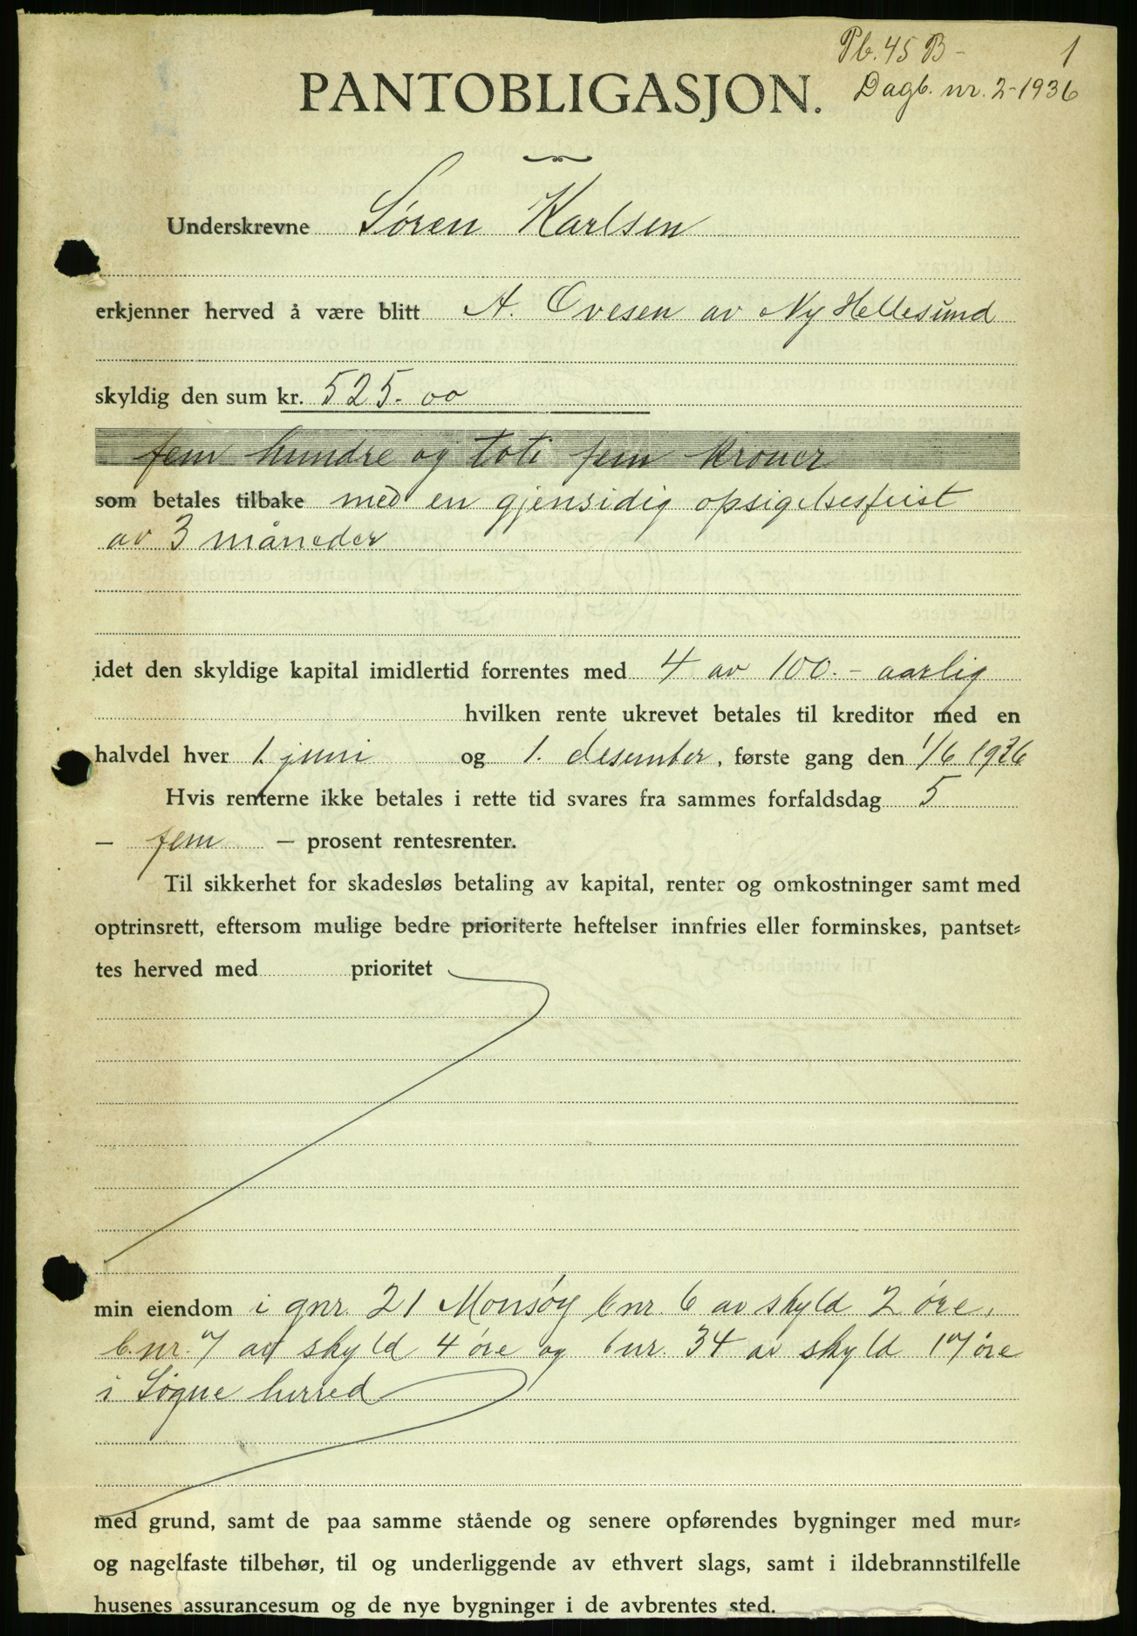 Pb. 45 B - 1
Dagb. nr. 2-1936
PANTOBLIGASJON.
Underskrevne Søren Karlsen
erkjenner herved å være blitt A. Ovesen av Ny Hellesund
skyldig den sum kr. 525.00
fem hundre og toti fem kroner
som betales tilbake med en gjensidig opsigelsesfrist
av 3 måneder
idet den skyldige kapital imidlertid forrentes med 4 av 100.- aarlig
hvilken rente ukrevet betales til kreditor med en
halvdel hver 1. juni og 1. desember, første gang den 1/6 1936
Hvis renterne ikke betales i rette tid svares fra sammes forfaldsdag 5
- fem - prosent rentesrenter.
Til sikkerhet for skadesløs betaling av kapital, renter og omkostninger samt med
optrinsrett, eftersom mulige bedre prioriterte heftelser innfries eller forminskes, pantset=
tes herved med prioritet
min eiendom i gnr. 21 Monsøy bnr. 6 av skyld 2 øre,
b.nr. 7 av skyld 4 øre og bnr. 34 av skyld 17 øre
i Søgne herred
med grund, samt de paa samme stående og senere opførendes bygninger med mur=
og nagelfaste tilbehør, til og underliggende av ethvert slags, samt i ildebrannstilfelle
husenes assurancesum og de nye bygninger i de avbrentes sted.